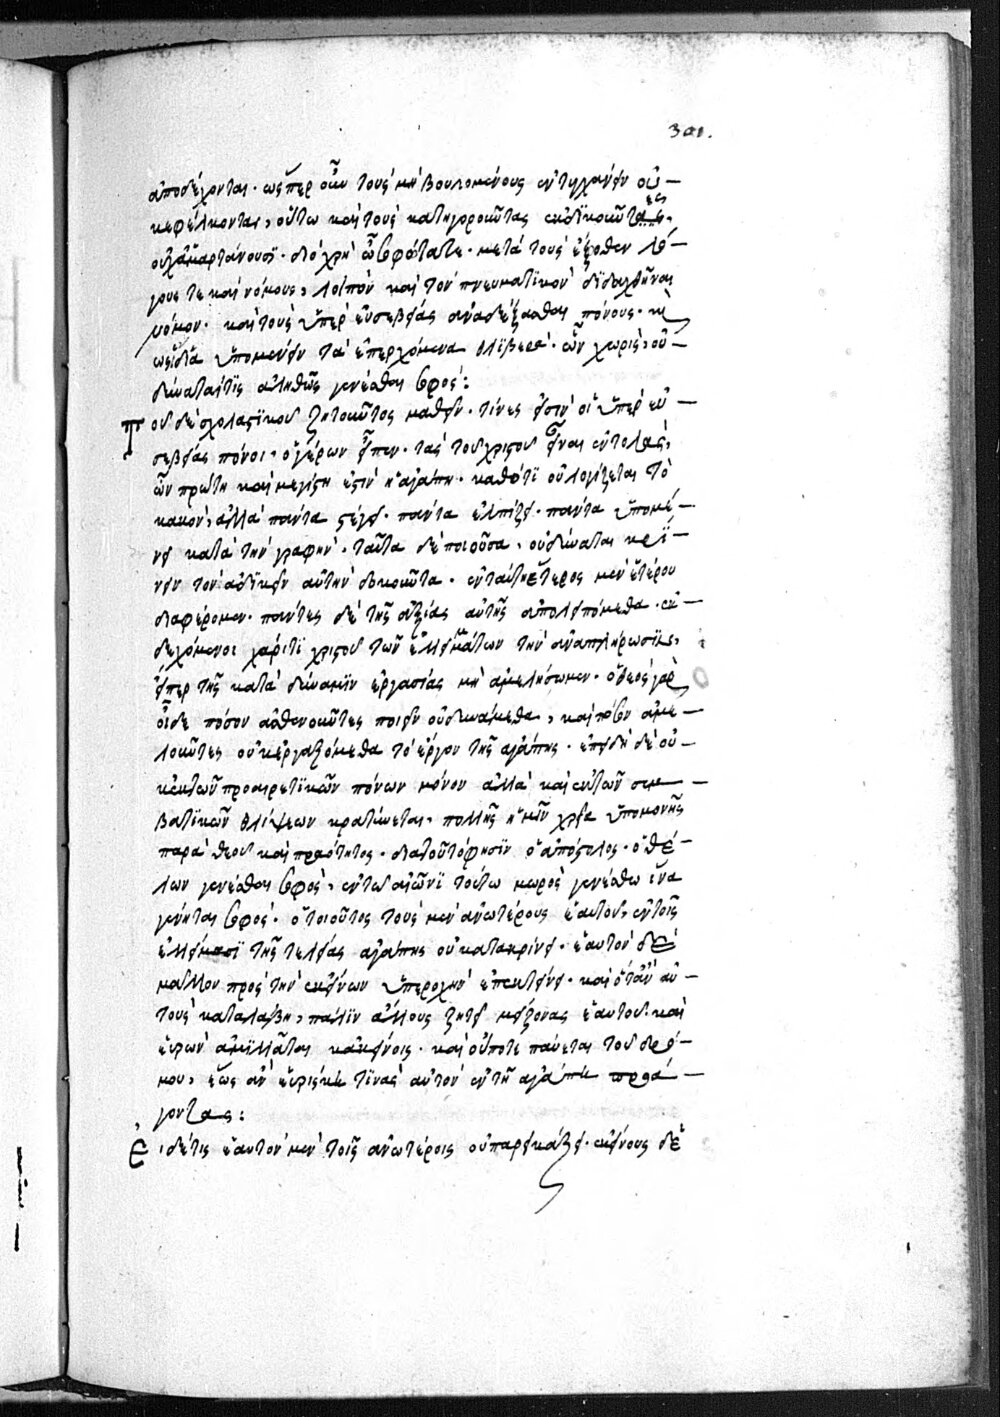 301.
ἀποδέχονται· ὥσπερ οὖν τοὺς μὴ βουλομένους ἐντυγχάνειν οὐ
κ ἐφέλκονται, οὕτω καὶ τοὺς κατηγοροῦντας ἐκδικοῦντες
οὐχ ἁμαρτάνουσι· διὸ χρὴ ὦ σοφώτατε· μετὰ τοὺς ἔξωθεν λό
γους τε καὶ νόμους, λοιπὸν καὶ τὸν πνευματικὸν διδαχθῆναι
νόμον· καὶ τοὺς ὑπὲρ εὐσεβείας ἀναδέξασθαι πόνους· καὶ
ὡς ἴδια ὑπομένειν τὰ ἐπερχόμενα θλιβερά· ὧν χωρὶς, οὐ
δύναταί τις ἀληθῶς γενέσθαι σοφός:
Τοῦ δὲ σχολαστικοῦ ζητοῦντος μαθεῖν· τίνες εἰσὶν οἱ ὑπὲρ εὐ
σεβείας πόνοι· ὁ γέρων εἶπεν· τὰς τοῦ χριστοῦ εἶναι ἐντολὰς,
ὧν πρώτη καὶ μεγίστη ἐστὶν ἡ ἀγάπη· καθότι οὐ λογίζεται τὸ
κακόν, ἀλλὰ πάντα στέγει· πάντα ἐλπίζει· πάντα ὑπομέ
νει κατὰ τὴν γραφήν· ταῦτα δὲ ποιοῦσα, οὐ δύναται κρί
νειν τὸν ἀδικεῖν αὐτὴν δοκοῦντα· ἐν ταύτη ἕτερος μὲν ἑτέρου
διαφέρομεν· πάντες δὲ τῆς ἀξίας αὐτῆς ἀπολειπόμεθα· ἐκ
δεχόμενοι χάριτι χριστοῦ τῶν ἐλλειμμάτων τὴν ἀναπλήρωσιν,
εἴπερ τῆς κατὰ δύναμιν ἐργασίας μὴ ἀμελήσωμεν· ὁ θεὸς γὰρ
οἶδε πόσον ἀσθενοῦντες ποιεῖν οὐ δυνάμεθα, καὶ πόσον ἀμε
λοῦντες οὐκ ἐργαζόμεθα τὸ ἔργον τῆς ἀγάπης· ἐπειδὴ δὲ οὐ
κ ἐκ τῶν προαιρετικῶν πόνων μόνον ἀλλὰ καὶ ἐκ τῶν συμ
βατικῶν θλίψεων κρατύνεται, πολλῆς ἡμῖν χρεία ὑπομονῆς
παρὰ θεοῦ καὶ πραότητος· διὰ τοῦτό φησιν ὁ ἀπόστολος· ὁ θέ
λων γενέσθαι σοφὸς, ἐν τῶ αἰῶνι τούτω μωρὸς γενέσθω ἵνα
γένηται σοφός· ὁ τοιοῦτος τοὺς μὲν ἀνωτέρους ἑαυτοῦ, ἐν τοῖς
ἐλλείμμασι τῆς τελείας ἀγάπης οὐ κατακρίνει· ἑαυτὸν δὲ
μᾶλλον πρὸς τὴν ἐκείνων ὑπεροχὴν ἐπεκτείνει· καὶ ὅταν αὐ
τοὺς καταλάβη, πάλιν ἄλλους ζητεῖ μείζονας ἑαυτοῦ· καὶ
εὑρὼν ἁμιλλᾶται κἀκείνοις· καὶ οὔποτε παύεται τοῦ δρό
μου, ἕως ἂν εὑρίσκη τινὰς αὐτὸν ἐν τῆ ἀγάπη προά
γοντας:
Εἰ δέ τις ἑαυτὸν μὲν τοῖς ἀνωτέροις οὐ παρεικάζει· ἐκείνους δὲ